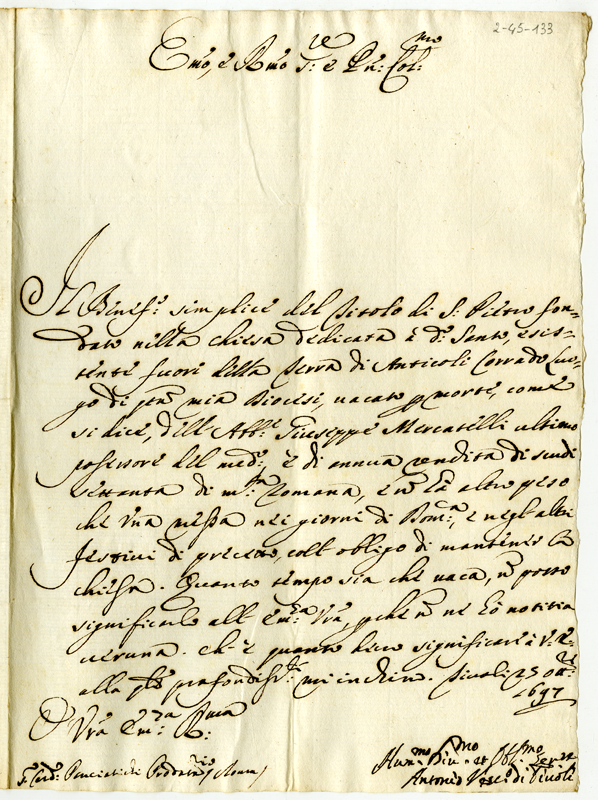 2-45-133
Emo, e Rmo Sre e Pn: Col:mo
Il Benef: simplice del titolo di S: Pietro fon=
dato nella chiesa dedicata à do: Santo, esis=
tente fuori della Terra di Anticoli Corrado luo=
go di qta mia Diocesi, vacato p morte, come
si dice, dell' Abbe: Giuseppe Mercatelli ultimo
possessore del med:, è di annua rendita di scudi
settanta di m:ta romana, e nō hà altro peso
che una messa nei giorni di Dom:ca, e negl' altri
festivi di precetto, coll' obligo di mantener la
chiesa. Quanto tempo sia che vaca, nō posso
significarlo all' Em:za Vra, pche nō ne hò notitia
veruna. Ch' è quanto devo significare à V: E:
alla qle profondissmte mi inchino. Tivoli 25 ott:re
1697
D' Vra Em:za Rma
Hum:mo Div:mo et Obl:mo Ser:re
Antonio Vesc:o di Tivoli
S: Card: Panciatichi Prodatario (Roma)